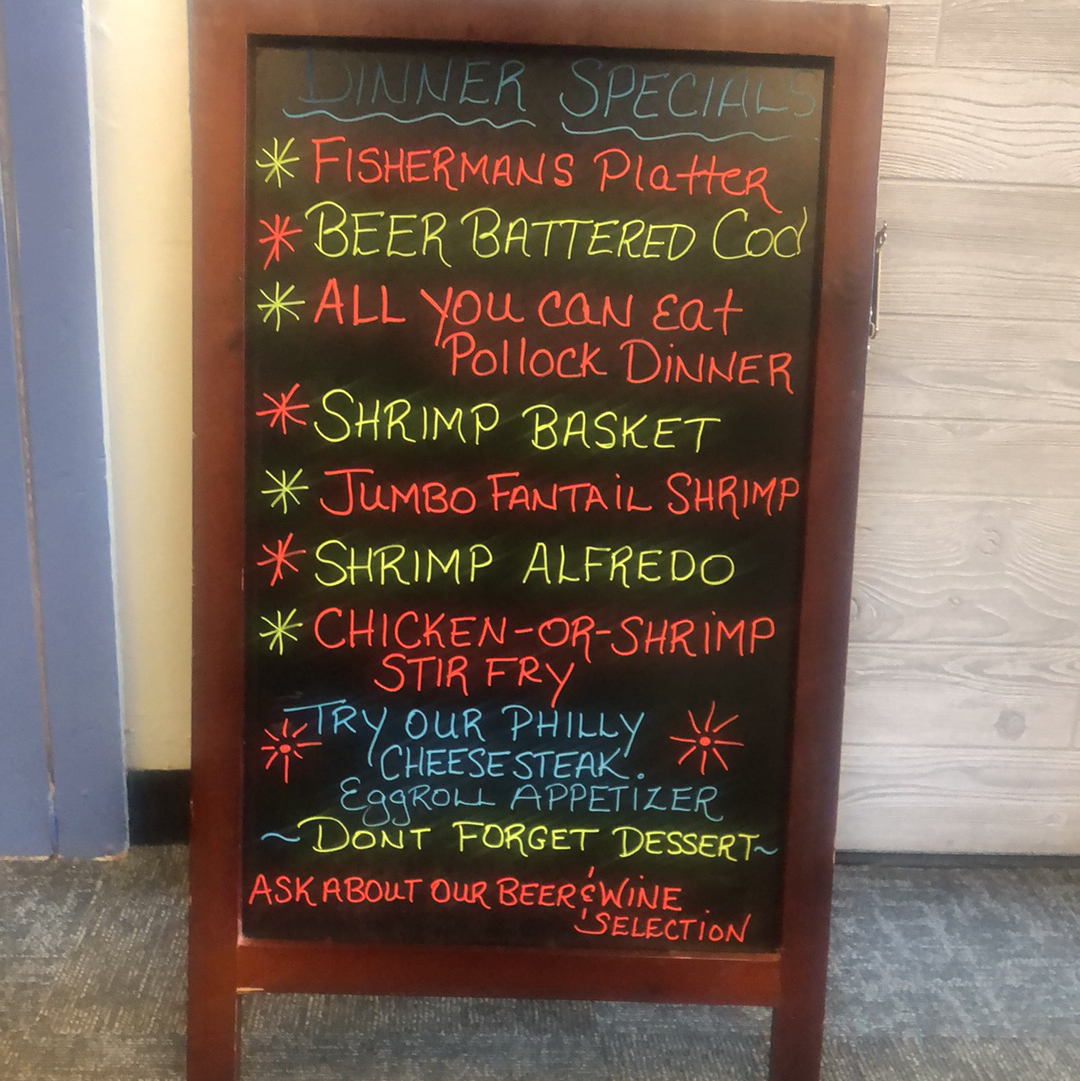 DINNER SPECIALS
FISHERMANS Platter
BEER BATTERED Cod
ALL you CAN Eat
Pollock DINNER
SHRIMP BASKET
JUMBO FANTAiL SHRIMP
SHRIMP ALFREDO
CHICKEN-OR-SHRiMP
STIR FRY
TRY OUR PHILLY
CHEESESTEAK.
EggROLL APPETIZER
~DONT FORGET DESSERT~
ASK ABOUT OUR BEER & WINE
SELECTION